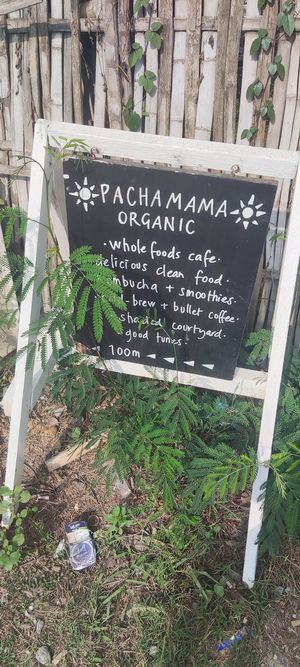 PACHAMAMA
ORGANIC
· whole foods cafe ·
delicious clean food.
+ smoothies.
-brew + bullet coffee
shaded courtyard.
good tunes.
100m